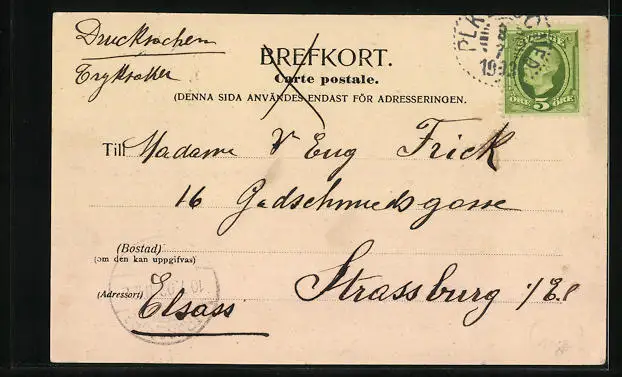 Drucksachen
Tryksaker
BREFKORT.
Carte postale.
(DENNA SIDA ANVÄNDES ENDAST FÖR ADRESSERINGEN.
ÖRE 5 ÖRE
Till Madame V Eug Frick
16 Goldschmiedsgasse
(Bostad)
(om den kan uppgifvas)
(Adressort)
Strassburg i/E.
Elsass